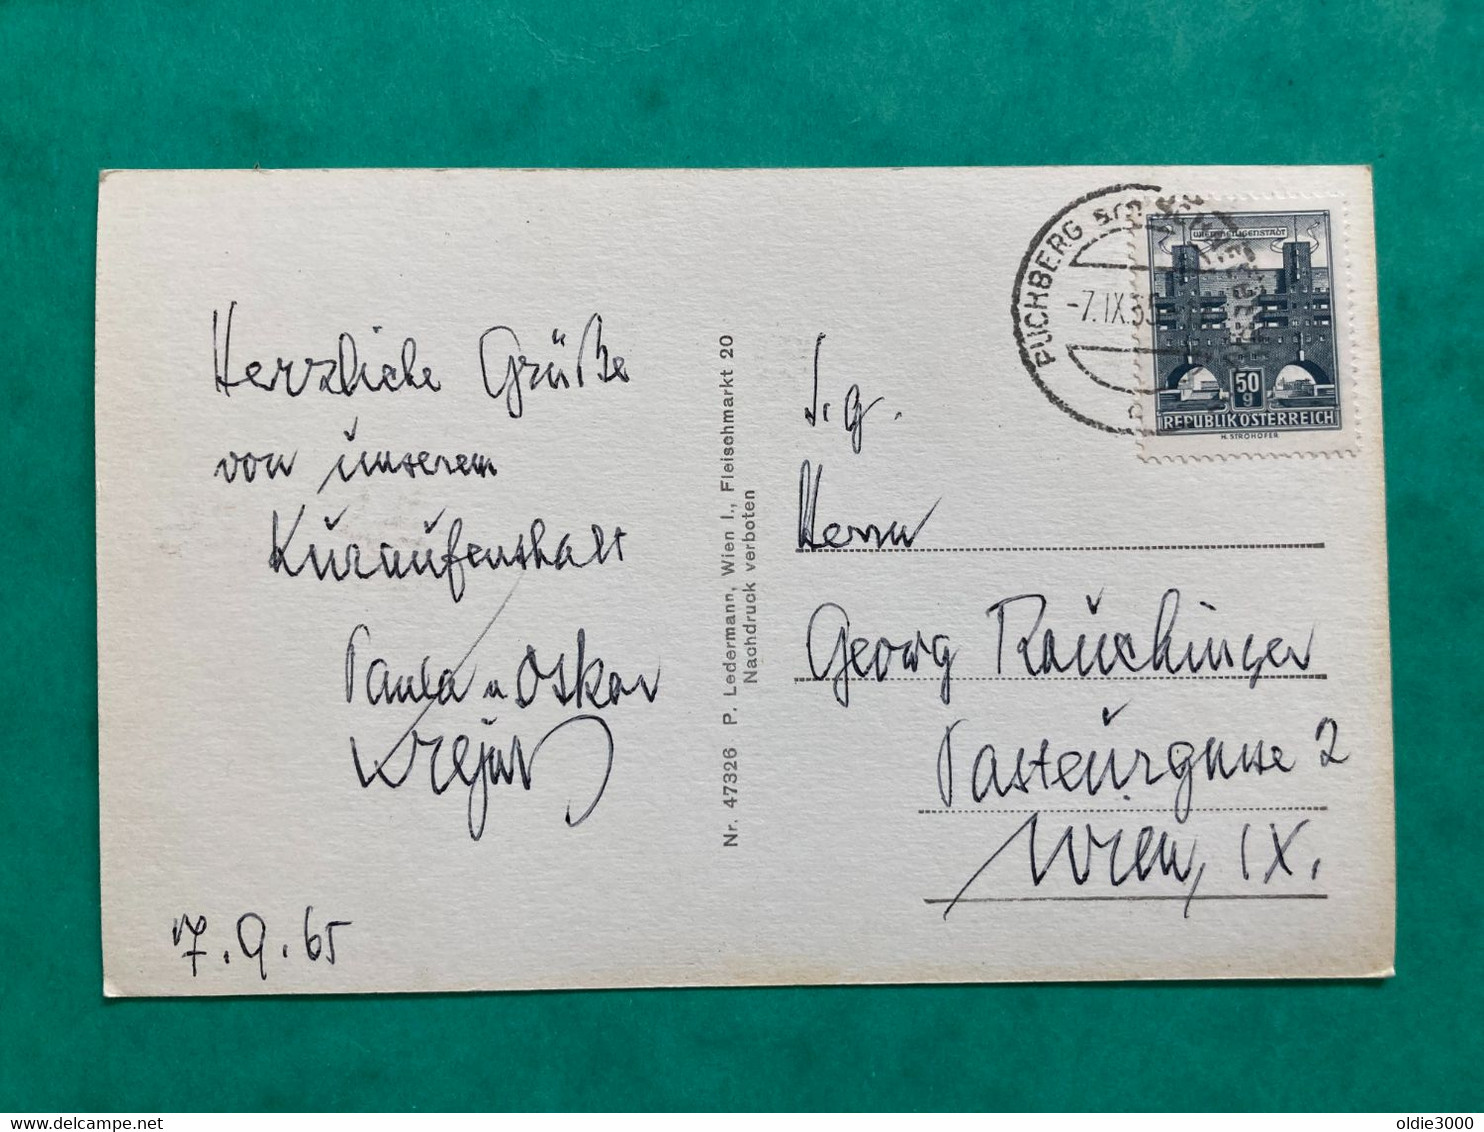 Herzliche Grüße
von unserem
Kuraufenthalt
Paula u Oskar
7.9.65
Nr. 47326 P. Ledermann, Wien I., Fleischmarkt 20
Nachdruck verboten
PUCHBERG
-7.IX.65
WIEN-HEILIGENSTADT
50
g
REPUBLIK ÖSTERREICH
H. STROHOFER
S.g.
Herrn
Georg Rauchinger
Pasteurgasse 2
Wien, IX.
www.delcampe.net
oldie3000